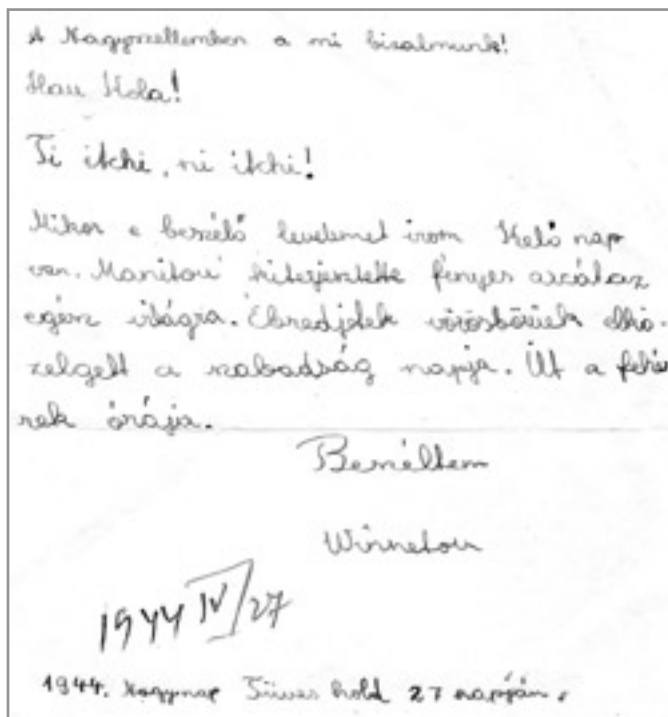 A Nagyszellemben a mi bizalmunk!
Hau Kola!
Ti itchi, ni itchi!
Mikor e beszélő levelemet irom Kelő nap
van. Manitou kiterjesztette fényes arcát az
egész világra. Ébredjetek vörösbőrüek elkö-
zelgett a szabadság napja. Üt a fehé
rek órája.
Beszéltem
Winnetou
1944 IV/27
1944. Nagynap Füves hold 27 napján.